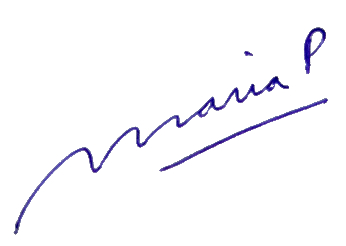 Maria P